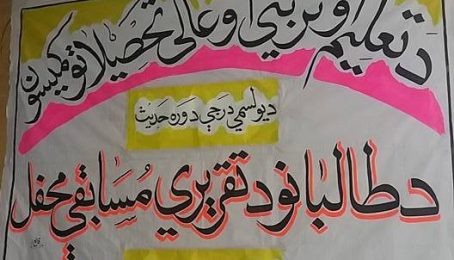 د تعلیم او تربیې او عالي تحصیلاتو کمیسون
د یولسمي درجې د دوره حدیث
د طالبانو د تقریري مسابقې محفل